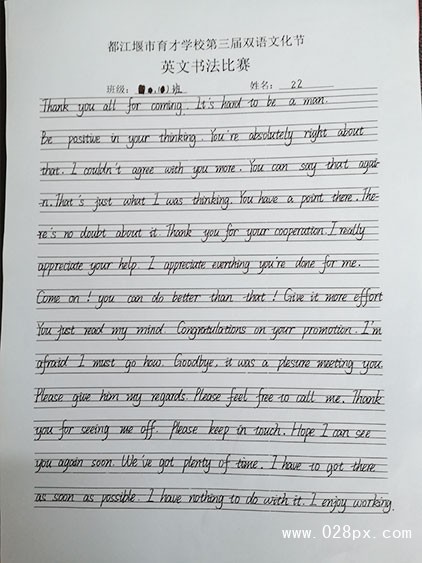 都江堰市育才学校第三届双语文化节
英文书法比赛
班级： 班 姓名： 22
Thank you all for coming. It's hard to be a man.
Be positive in your thinking. You're absolutely right about
that. I couldn't agree with you more. You can say that agai-
n. That's just what I was thinking. You have a point there. The-
re's no doubt about it. Thank you for your cooperation. I really
appreciate your help. I appreciate everthing you're done for me.
Come on! you can do better than that! Give it more effort
You just read my mind. Congratulations on your promotion. I'm
afraid I must go how. Goodbye, it was a plesure meeting you.
Please give him my regards. Please feel free to call me. Thank
you for seeing me off. Please keep in touch. Hope I can see
you again soon. We've got plenty of time. I have to got there
as soon as possible. I have nothing to do with it. I enjoy working.
www.028px.com